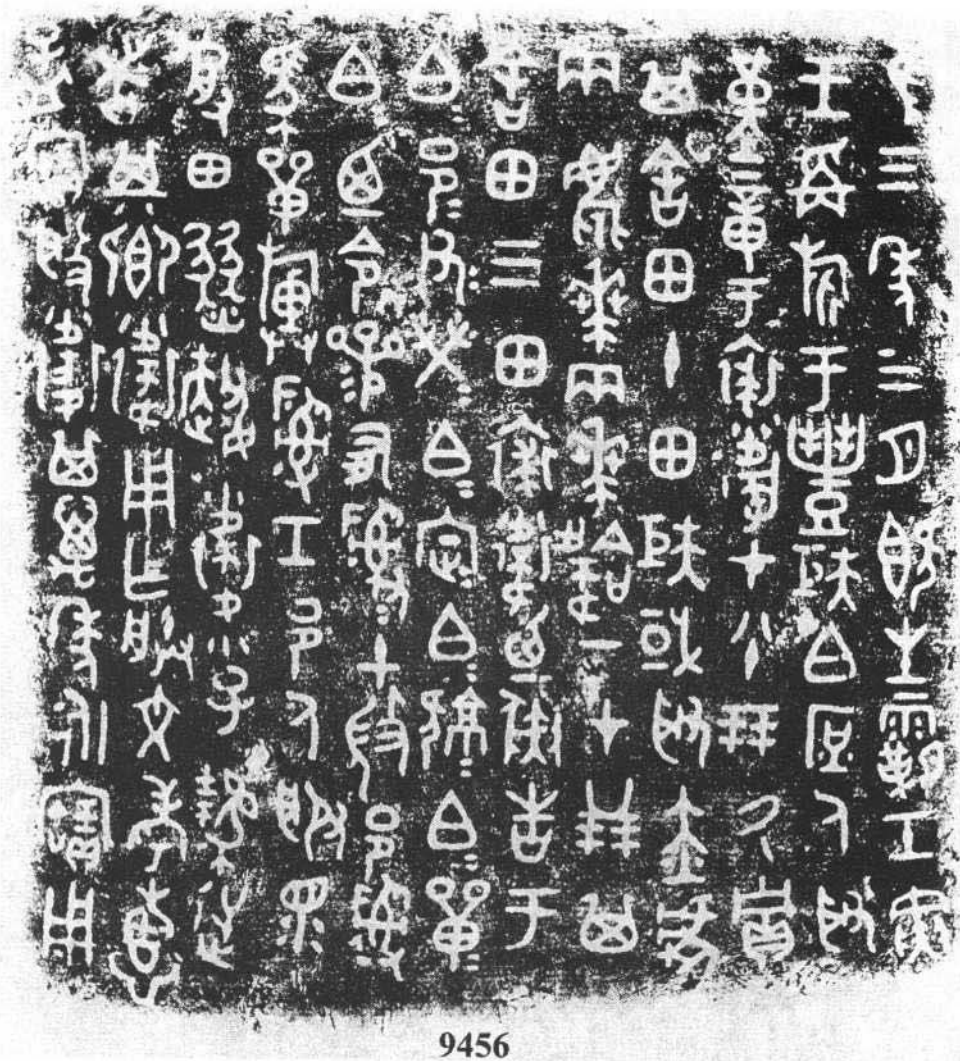 隹三年三月既生霸壬寅
王爯旂于豐矩白庶人取
堇章于裘衛才八十朋氒貯
其舍田十田矩或取赤虎
兩麀𠦪兩𠦪韐一才廿朋其
舍田三田裘衛廼彘告于
白邑父榮白定白𤨲白單
白廼令參有𤔲𤔲土微邑𤔲
馬單旟𤔲工邑人服眔
受田燹趞衛小子逆
者其卿衛用乍朕文考惠
孟寶般衛其萬年永寶用
9456